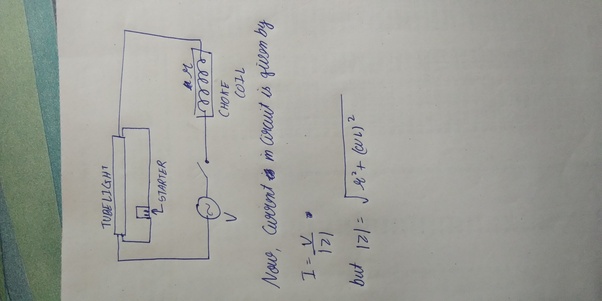 TUBELIGHT
STARTER
V
r
CHOKE
COIL
Now, Current in circuit is given by
I = V/|Z|
but |Z| = √(r² + (ωL)²)